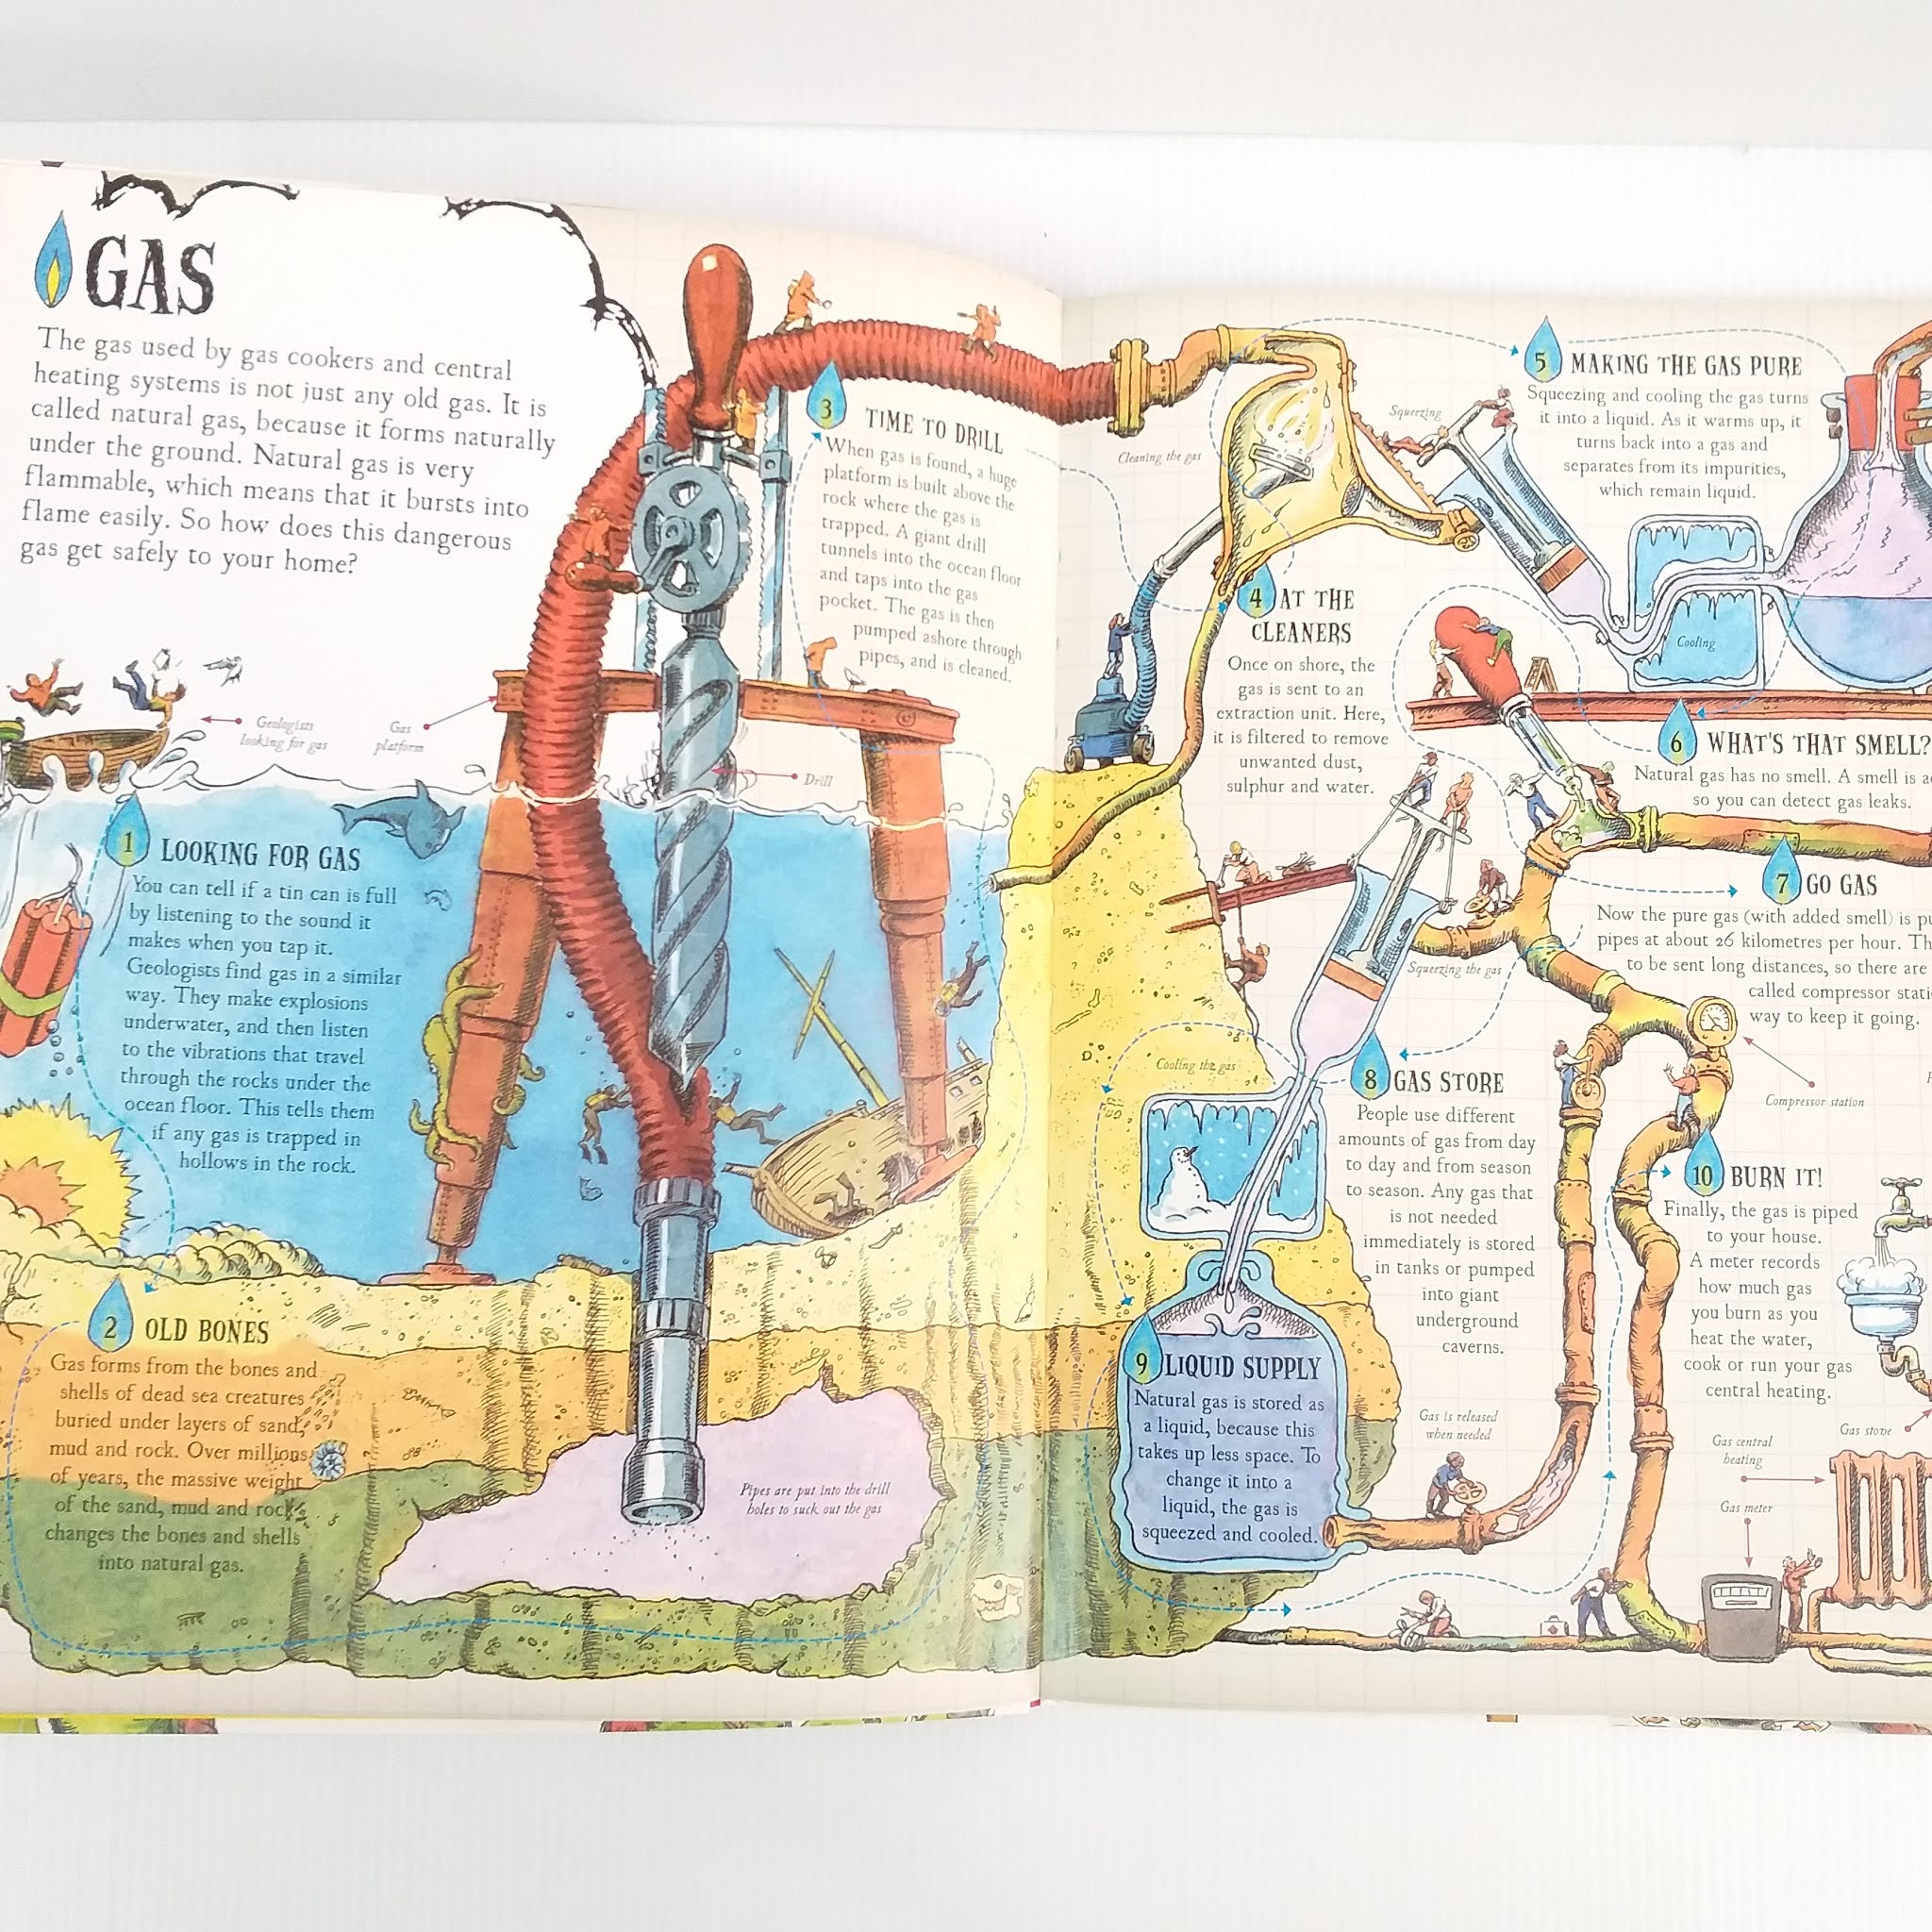 GAS
The gas used by gas cookers and central
heating systems is not just any old gas. It is
called natural gas, because it forms naturally
under the ground. Natural gas is very
flammable, which means that it bursts into
flame easily. So how does this dangerous
gas get safely to your home?
Geologists
looking for gas
Gas
platform
Drill
1 LOOKING FOR GAS
You can tell if a tin can is full
by listening to the sound it
makes when you tap it.
Geologists find gas in a similar
way. They make explosions
underwater, and then listen
to the vibrations that travel
through the rocks under the
ocean floor. This tells them
if any gas is trapped in
hollows in the rock.
2 OLD BONES
Gas forms from the bones and
shells of dead sea creatures
buried under layers of sand,
mud and rock. Over millions
of years, the massive weight
of the sand, mud and rock
changes the bones and shells
into natural gas.
3 TIME TO DRILL
When gas is found, a huge
platform is built above the
rock where the gas is
trapped. A giant drill
tunnels into the ocean floor
and taps into the gas
pocket. The gas is then
pumped ashore through
pipes, and is cleaned.
Pipes are put into the drill
holes to suck out the gas
Cleaning the gas
4 AT THE
CLEANERS
Once on shore, the
gas is sent to an
extraction unit. Here,
it is filtered to remove
unwanted dust,
sulphur and water.
Squeezing
5 MAKING THE GAS PURE
Squeezing and cooling the gas turns
it into a liquid. As it warms up, it
turns back into a gas and
separates from its impurities,
which remain liquid.
Cooling
6 WHAT'S THAT SMELL?
Natural gas has no smell. A smell is
so you can detect gas leaks.
7 GO GAS
Now the pure gas (with added smell) is
pipes at about 26 kilometres per hour.
to be sent long distances, so there are
called compressor
way to keep it going.
Squeezing the gas
Cooling the gas
8 GAS STORE
People use different
amounts of gas from day
to day and from season
to season. Any gas that
is not needed
immediately is stored
in tanks or pumped
into giant
underground
caverns.
Compressor station
9 LIQUID SUPPLY
Natural gas is stored as
a liquid, because this
takes up less space. To
change it into a
liquid, the gas is
squeezed and cooled.
Gas is released
when needed
10 BURN IT!
Finally, the gas is piped
to your house.
A meter records
how much gas
you burn as you
heat the water,
cook or run your gas
central heating.
Gas stove
Gas central
heating
Gas meter